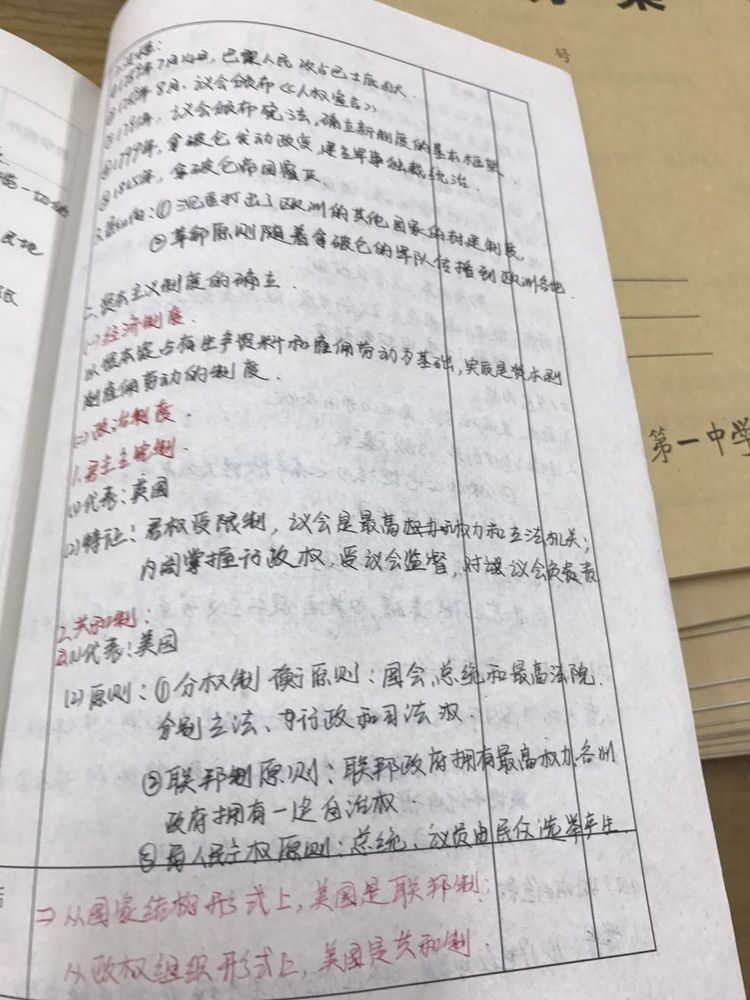 ①1789年7月14日，巴黎人民攻占巴士底狱.
8月，议会颁布《人权宣言》
议会颁布宪法，确立新制度的基本框架
④1799年，拿破仑发动政变，建立军事独裁统治.
⑤1815年，拿破仑帝国覆灭
①沉重打击了欧洲的其他国家的封建制度
②革命原则随着拿破仑的军队传播到欧洲各地.
二、资本主义制度的确立.
(一)经济制度.
以资本家占有生产资料和雇佣劳动为基础，实质是资本剥
削雇佣劳动的制度.
(二)政治制度.
1.君主立宪制.
(1)代表：英国
(2)特征：君权受限制，议会是最高权力和立法机关；
内阁掌握行政权，受议会监督，对议会负责
2.共和制：
(1)代表：美国
(2)原则：①分权制衡原则：国会、总统和最高法院.
分别立法、行政和司法权.
②联邦制原则：联邦政府拥有最高权力，各州
政府拥有一定自治权.
③人民主权原则：总统、议员由民众选举产生.
⇒从国家结构形式上，美国是联邦制；
从政权组织形式上，美国是共和制
案
号
第一中学